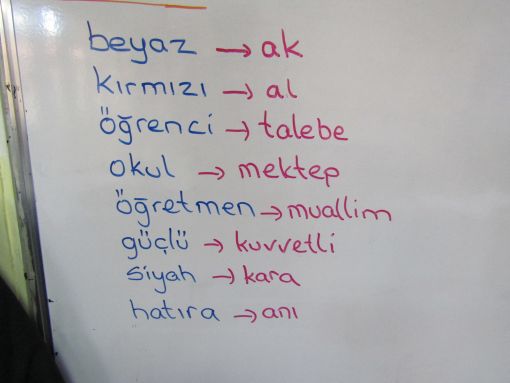 beyaz → ak
kırmızı → al
öğrenci → talebe
okul → mektep
öğretmen → muallim
güçlü → kuvvetli
siyah → kara
hatıra → anı